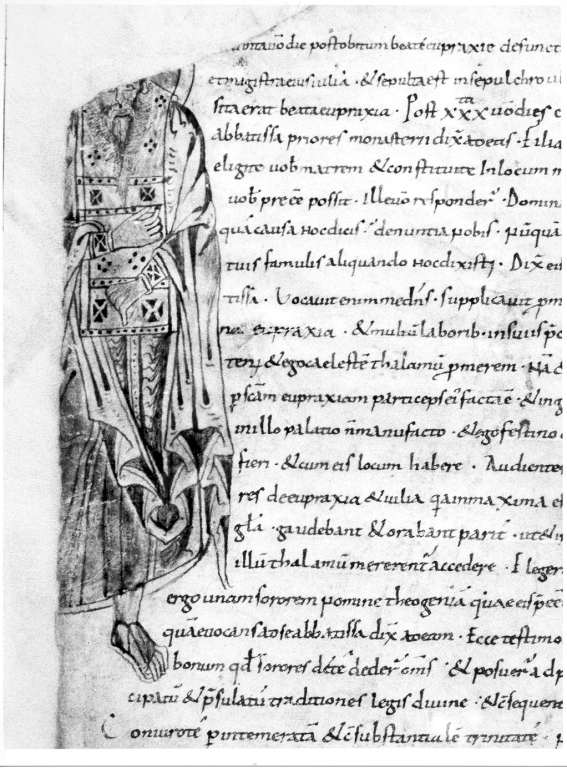 die post obitum beate eupraxie defunct
et magistra eius iulia · & sepulta est in sepulchro u
sita erat beata eupraxia · Post xxx ta uo dies c
abbatissa priores monasterii dix̄ ad eas · Filia
eligite uob matrem & constituite In locum m
uob p̄ee possit · Illę uō responder · Domin
qua causa hoc dicis · denuntia nobis · nūquā
tuis famulis aliquando hoc dixisti · Dix̄ eis
tissa · Uocauit enim me dn̄s · supplicauit pm
na eupraxia · & multū laborib · in suuis pc
teri & ego caelestē thalamū pmerem · Nā &
pscām eupraxiam particeps ei facta ē · & ing
in illo palatio n̄ manufacto · & ego festino
fieri · & cum eis locum habere · Audiente
res de eupraxia & iulia q̄a in maxima e
gl̄a · gaudebant & orabant parit · ut & i
illū thalamū mererent accedere · Eleger
ergo unam sororem nomine theogeniā quae eis p
quā euocans ad se abbatissa dix̄ ad eam · Ecce testimo
bonum qd sorores de te deder om̄s · & posuer a d p
cipatū & p̄sulatū traditiones legis diuine · & c̄sequent
Coniuro te p intemeratā & c̄substantialē trinitatē ·